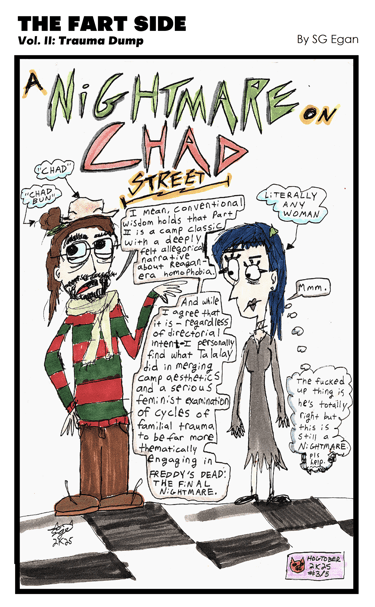 THE FART SIDE
Vol. II: Trauma Dump
By SG Egan
A
NiGHTMARE
ON
CHAD
STREET
"CHAD"
"CHAD
BUN"
LiTERALLY
ANY
WOMAN
I mean, conventional
wisdom holds that Part
II is a camp classic
with a deeply
felt allegorical
narrative
about Reagan-
era homophobia.
Mmm.
And while
I agree that
it is – regardless
of directorial
intent – I personally
find what Talalay
did in merging
camp aesthetics
and a serious
feminist examination
of cycles of
familial trauma
to be far more
thematically
engaging in
FREDDY'S DEAD:
THE FiNAL
NiGHTMARE.
The fucked
up thing is
he's totally
right but
this is
still a
NiGHTMARE
pls
help.
2K25
HOGTOBER
2K25
#3/5